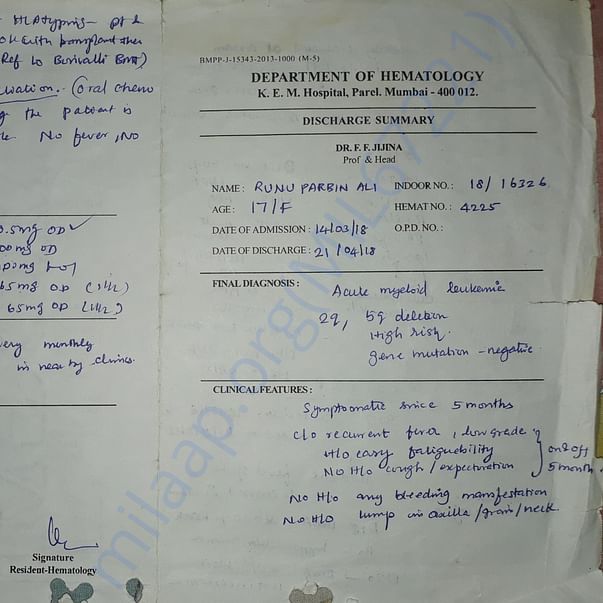 HLA typing - pt &
OK with transplant then
Ref to Borivali BMT)
(Oral chemo
g the patient is
No fever, No
0.5mg OD
00mg OD
65mg OD
65mg OD
ery monthly
in near by clinics.
Signature
Resident-Hematology
BMPP-J-15343-2013-1000 (M-5)
DEPARTMENT OF HEMATOLOGY
K. E. M. Hospital, Parel. Mumbai - 400 012.
DISCHARGE SUMMARY
DR. F. F. JIJINA
Prof & Head
NAME : RUNU PARBIN ALI INDOOR NO. : 18/16326
AGE : 17/F HEMAT NO. : 4225
DATE OF ADMISSION : 14/03/18 O.P.D. NO. :
DATE OF DISCHARGE : 21/04/18
FINAL DIAGNOSIS : Acute myeloid leukemia
5q deletion
High risk.
gene mutation - negative
CLINICAL FEATURES :
Symptomatic since 5 months
C/o recurrent fever, low grade
H/o easy fatiguebility on & off
No H/o cough / expectoration 5 month.
No H/o any bleeding manifestation
No H/o lump in axilla / groin / neck
milaap.org(MIL67221)